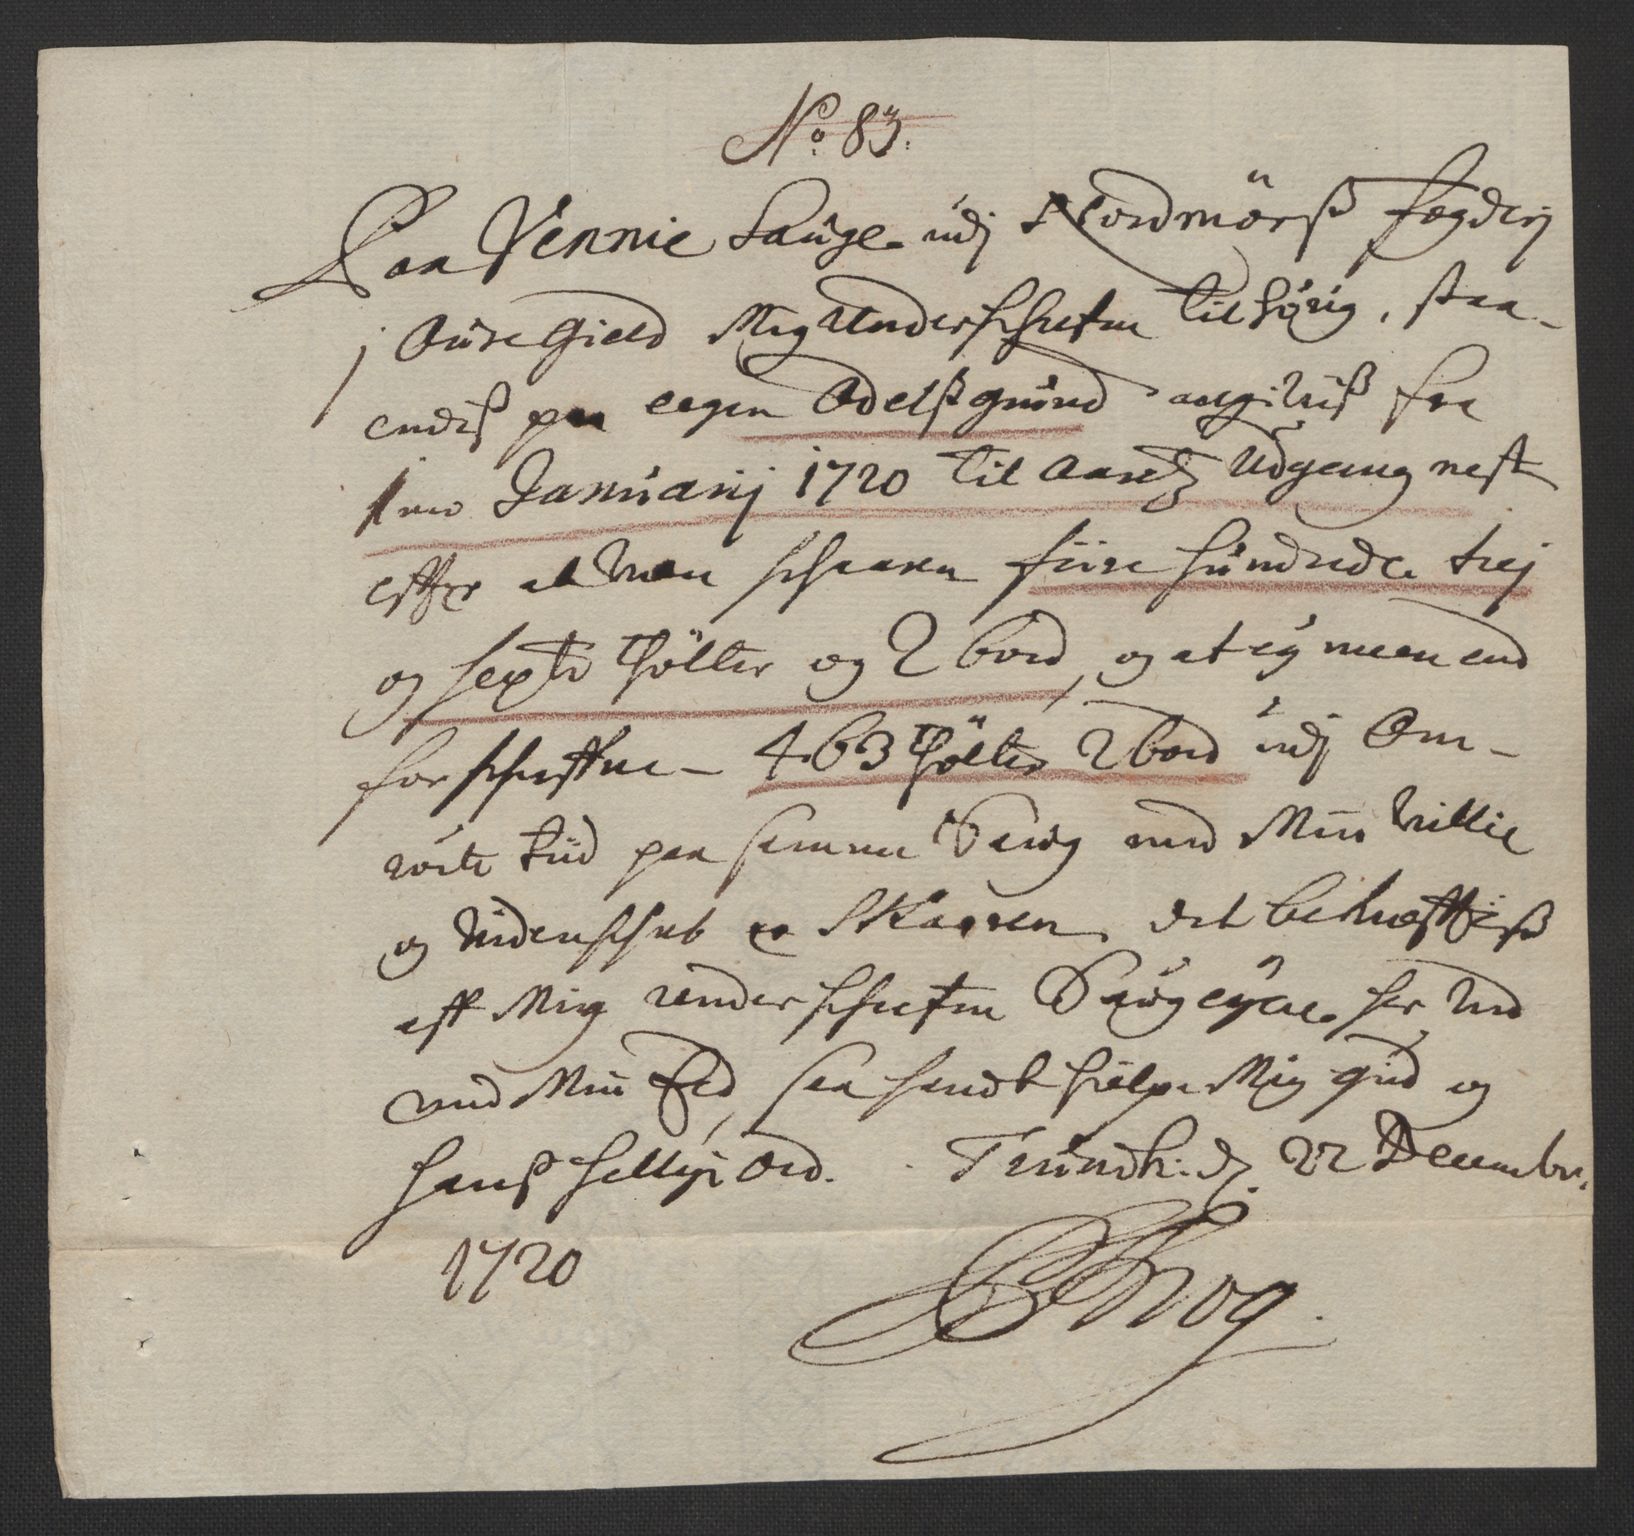 No. 83.
Paa Vennie Sauge udj Nordmörß fogderj
j Aure Gield Mig Underschrefne tilhörig, staa-
endiß paa eegen Odelßgrund angifuiß fra
1mo Januarij 1720 til Aaretz Udgang nest
effter at were schaaren fiire hundrede trej
og sexti tölter og 2 bord, og at ej meere end
forschreffne - 463 tölter 2 bord udj Om-
rörte tiid paa samme Saug med Min Villie
og Videnschab er Skaaren, det bekræfftiß
aff Mig underschrefne Saug eyere her ved
med Min Eed, saa sandt hielpe Mig gud og
hanß hellige Ord. Trundh: d. 22 Decembr.
1720